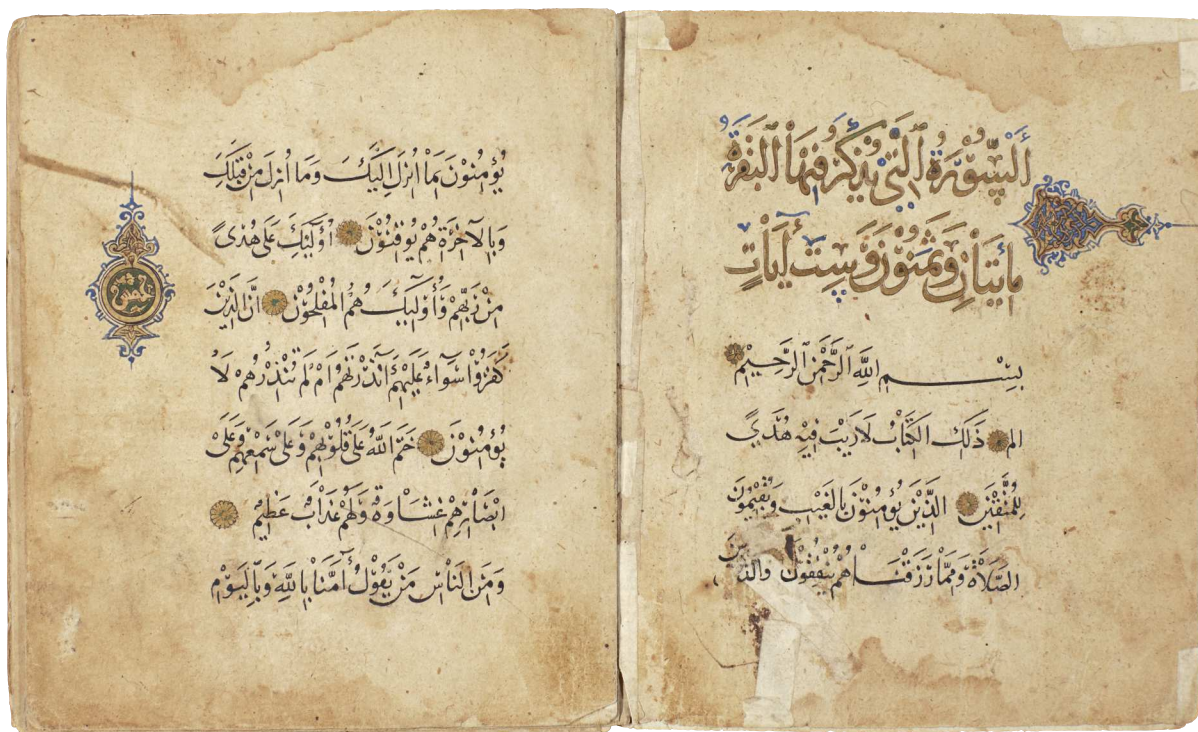 السُّوْرَةُ الَّتِيْ يُذْكَرُ فِيْهَا الْبَقَرَةُ
مِائَتَانِ وَثَمَنُوْنَ وَسِتُّ آيَاتٍ
بِسْمِ اللَّهِ الرَّحْمٰنِ الرَّحِيْمِ
الم ذَلِكَ الْكِتَابُ لَا رَيْبَ فِيْهِ هُدًي
لِلْمُتَّقِيْنَ الَّذِيْنَ يُؤْمِنُوْنَ بِالْغَيْبِ وَيُقِيْمُونَ
الصَّلَاةَ وَمِمَّا رَزَقْنَاهُمْ يُنْفِقُوْنَ وَالَّذِيْنَ
يُؤْمِنُوْنَ بِمَا أُنْزِلَ إِلَيْكَ وَمَا أُنْزِلَ مِنْ قَبْلِكَ
وَبِالْآخِرَةِ هُمْ يُوْقِنُوْنَ أُوْلَئِكَ عَلَى هُدًى
مِنْ رَبِّهِمْ وَأُوْلَئِكَ هُمُ الْمُفْلِحُوْنَ إِنَّ الَّذِيْنَ
كَفَرُوْا سَوَآءٌ عَلَيْهِمْ ءَأَنْذَرْتَهُمْ أَمْ لَمْ تُنْذِرْهُمْ لَا
يُؤْمِنُوْنَ خَتَمَ اللَّهُ عَلَى قُلُوْبِهِمْ وَعَلَى سَمْعِهِمْ وَعَلَى
أَبْصَارِهِمْ غِشَاوَةٌ وَلَهُمْ عَذَابٌ عَظِيْمٌ
وَمِنَ النَّاسِ مَنْ يَقُوْلُ آمَنَّا بِاللَّهِ وَبِالْيَوْمِ